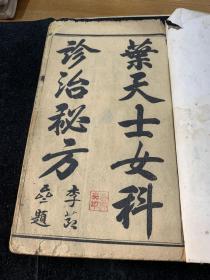 葉天士女科
診治秘方
李
題